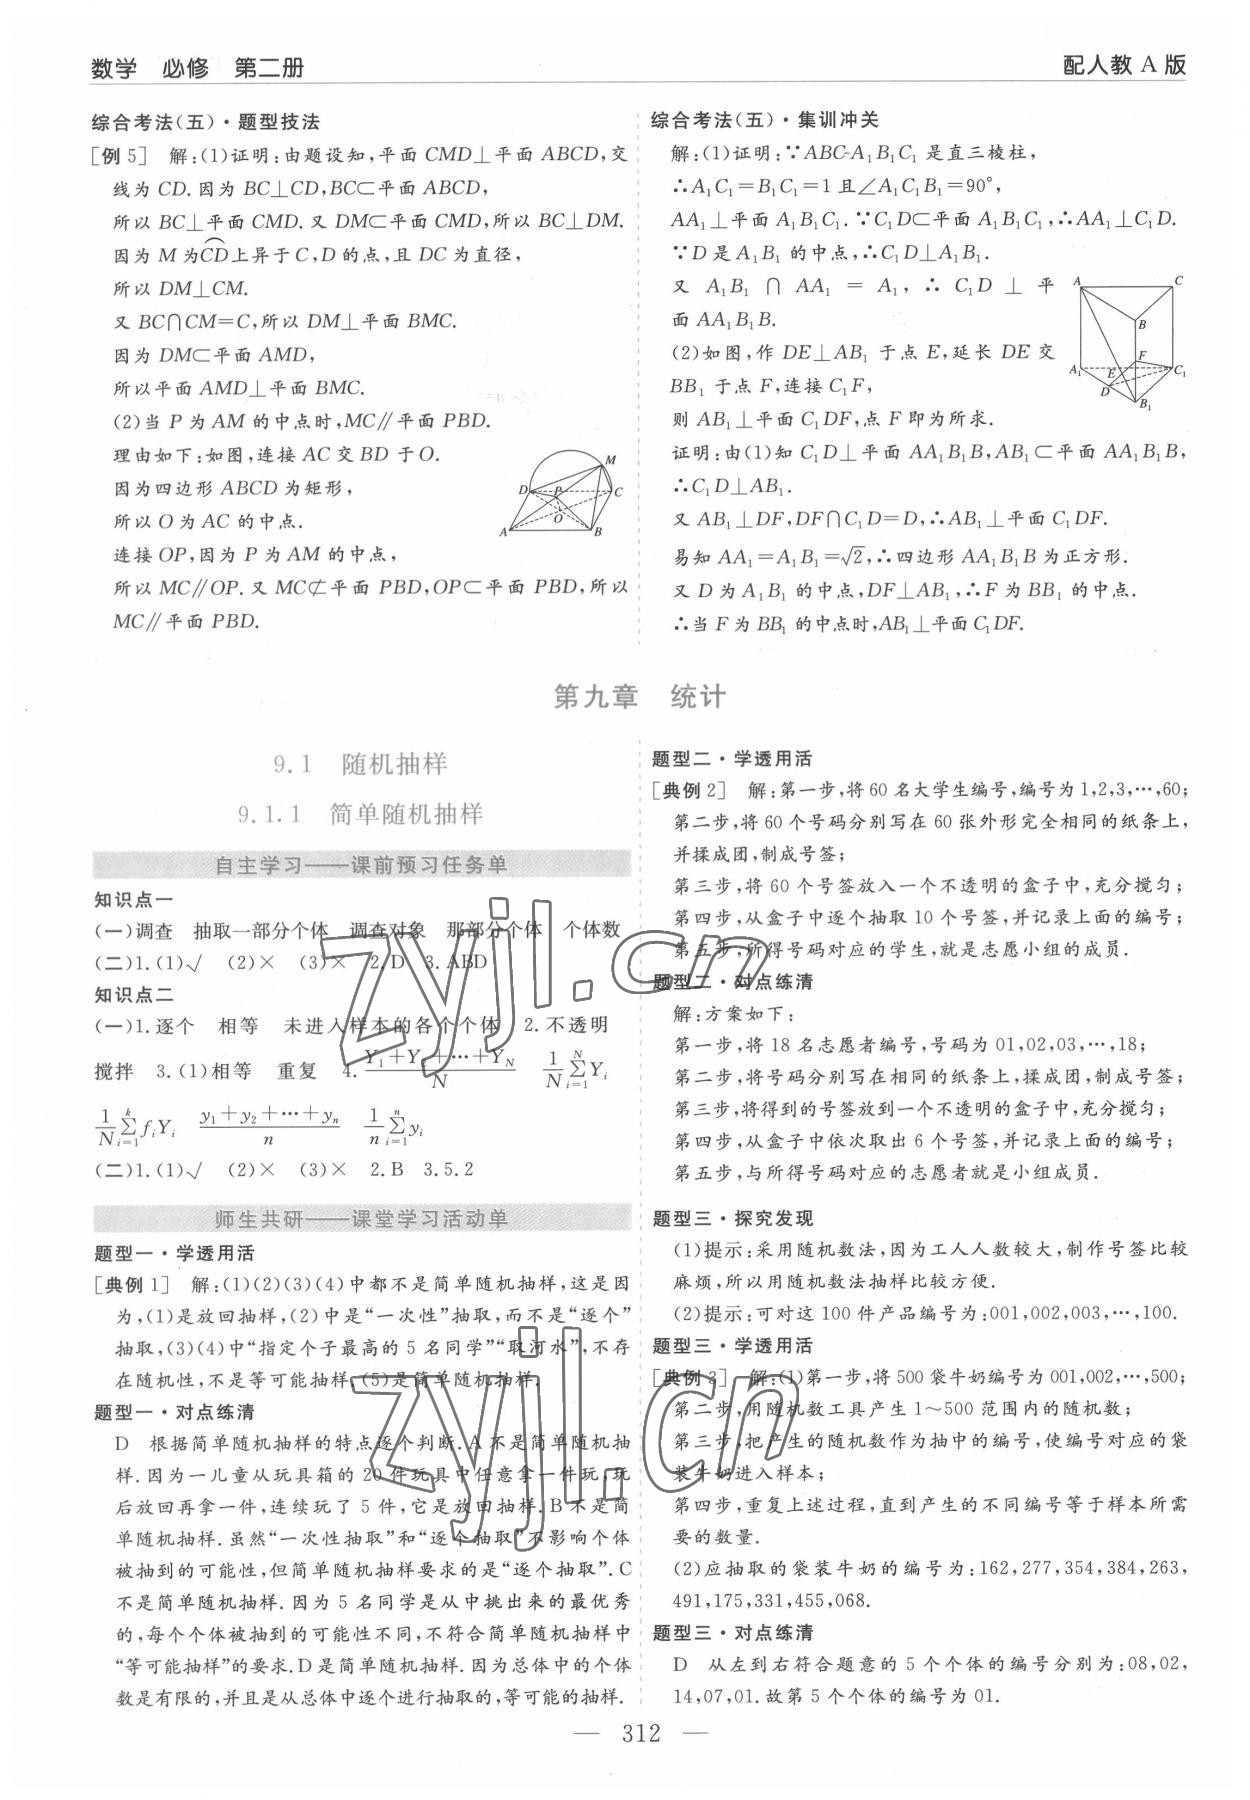 数学　必修　第二册
配人教 A 版
综合考法(五)·题型技法
[例 5]　解:(1)证明:由题设知,平面 CMD⊥平面 ABCD,交
线为 CD.因为 BC⊥CD,BC⊂平面 ABCD,
所以 BC⊥平面 CMD.又 DM⊂平面 CMD,所以 BC⊥DM.
因为 M 为CD上异于 C,D 的点,且 DC 为直径,
所以 DM⊥CM.
又 BC∩CM=C,所以 DM⊥平面 BMC.
因为 DM⊂平面 AMD,
所以平面 AMD⊥平面 BMC.
(2)当 P 为 AM 的中点时,MC∥平面 PBD.
理由如下:如图,连接 AC 交 BD 于 O.
因为四边形 ABCD 为矩形,
所以 O 为 AC 的中点.
连接 OP,因为 P 为 AM 的中点,
所以 MC∥OP.又 MC⊄平面 PBD,OP⊂平面 PBD,所以
MC∥平面 PBD.
M
D
P
C
O
A
B
综合考法(五)·集训冲关
解:(1)证明:∵ABC-A₁B₁C₁ 是直三棱柱,
∴A₁C₁=B₁C₁=1 且∠A₁C₁B₁=90°,
AA₁⊥平面 A₁B₁C₁.∵C₁D⊂平面 A₁B₁C₁,∴AA₁⊥C₁D.
∵D 是 A₁B₁ 的中点,∴C₁D⊥A₁B₁.
又 A₁B₁ ∩ AA₁ = A₁, ∴ C₁D ⊥ 平
面 AA₁B₁B.
(2)如图,作 DE⊥AB₁ 于点 E,延长 DE 交
BB₁ 于点 F,连接 C₁F,
则 AB₁⊥平面 C₁DF,点 F 即为所求.
证明:由(1)知 C₁D⊥平面 AA₁B₁B,AB₁⊂平面 AA₁B₁B,
∴C₁D⊥AB₁.
又 AB₁⊥DF,DF∩C₁D=D,∴AB₁⊥平面 C₁DF.
易知 AA₁=A₁B₁=√2,∴四边形 AA₁B₁B 为正方形.
又 D 为 A₁B₁ 的中点,DF⊥AB₁,∴F 为 BB₁ 的中点.
∴当 F 为 BB₁ 的中点时,AB₁⊥平面 C₁DF.
A
C
B
F
A₁
E
C₁
D
B₁
第九章　统计
9.1　随机抽样
9.1.1　简单随机抽样
自主学习——课前预习任务单
知识点一
(一)调查　抽取一部分个体　调查对象　那部分个体　个体数
(二)1.(1)√　(2)×　(3)×　2.D　3.ABD
知识点二
(一)1.逐个　相等　未进入样本的各个个体　2.不透明
搅拌　3.(1)相等　重复　4.(Y₁+Y₂+⋯+Y_N)/N　1/N ∑_{i=1}^{N} Y_i
1/N ∑_{i=1}^{k} f_iY_i　(y₁+y₂+⋯+y_n)/n　1/n ∑_{i=1}^{n} y_i
(二)1.(1)√　(2)×　(3)×　2.B　3.5.2
师生共研——课堂学习活动单
题型一·学透用活
[典例 1]　解:(1)(2)(3)(4)中都不是简单随机抽样,这是因
为,(1)是放回抽样,(2)中是“一次性”抽取,而不是“逐个”
抽取,(3)(4)中“指定个子最高的 5 名同学”“取河水”,不存
在随机性,不是等可能抽样.(5)是简单随机抽样.
题型一·对点练清
D　根据简单随机抽样的特点逐个判断.A 不是简单随机抽
样.因为一儿童从玩具箱的 20 件玩具中任意拿一件玩,玩
后放回再拿一件,连续玩了 5 件,它是放回抽样.B 不是简
单随机抽样.虽然“一次性抽取”和“逐个抽取”不影响个体
被抽到的可能性,但简单随机抽样要求的是“逐个抽取”.C
不是简单随机抽样.因为 5 名同学是从中挑出来的最优秀
的,每个个体被抽到的可能性不同,不符合简单随机抽样中
“等可能抽样”的要求.D 是简单随机抽样.因为总体中的个体
数是有限的,并且是从总体中逐个进行抽取的,等可能的抽样.
题型二·学透用活
[典例 2]　解:第一步,将 60 名大学生编号,编号为 1,2,3,⋯,60;
第二步,将 60 个号码分别写在 60 张外形完全相同的纸条上,
并揉成团,制成号签;
第三步,将 60 个号签放入一个不透明的盒子中,充分搅匀;
第四步,从盒子中逐个抽取 10 个号签,并记录上面的编号;
第五步,所得号码对应的学生,就是志愿小组的成员.
题型二·对点练清
解:方案如下:
第一步,将 18 名志愿者编号,号码为 01,02,03,⋯,18;
第二步,将号码分别写在相同的纸条上,揉成团,制成号签;
第三步,将得到的号签放到一个不透明的盒子中,充分搅匀;
第四步,从盒子中依次取出 6 个号签,并记录上面的编号;
第五步,与所得号码对应的志愿者就是小组成员.
题型三·探究发现
(1)提示:采用随机数法,因为工人人数较大,制作号签比较
麻烦,所以用随机数法抽样比较方便.
(2)提示:可对这 100 件产品编号为:001,002,003,⋯,100.
题型三·学透用活
[典例 3]　解:(1)第一步,将 500 袋牛奶编号为 001,002,⋯,500;
第二步,用随机数工具产生 1～500 范围内的随机数;
第三步,把产生的随机数作为抽中的编号,使编号对应的袋
装牛奶进入样本;
第四步,重复上述过程,直到产生的不同编号等于样本所需
要的数量.
(2)应抽取的袋装牛奶的编号为:162,277,354,384,263,
491,175,331,455,068.
题型三·对点练清
D　从左到右符合题意的 5 个个体的编号分别为:08,02,
14,07,01.故第 5 个个体的编号为 01.
— 312 —
zyjl.cn
zyjl.cn